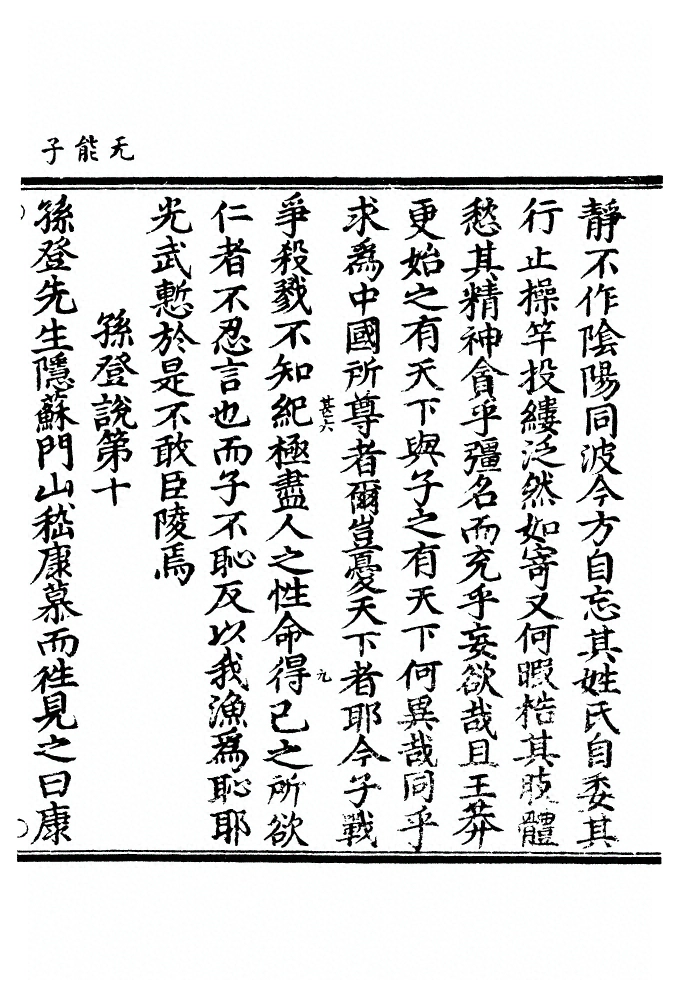 无能子
靜不作陰陽同波今方自忘其姓氏自委其
行止操竿投縷泛然如寄又何暇梏其肢體
愁其精神貪乎彊名而充乎妄欲哉且王莽
更始之有天下與子之有天下何異哉同乎
求爲中國所尊者爾豈憂天下者耶今子戰
甚六
九
爭殺戮不知紀極盡人之性命得己之所欲
仁者不忍言也而子不恥反以我漁爲恥耶
光武慙於是不敢臣陵焉
孫登說第十
孫登先生隱蘇門山嵇康慕而徃見之曰康